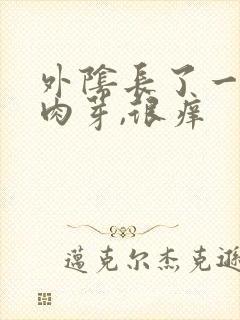 外陰長了一
肉芽,很癢
邁克尔杰克遜